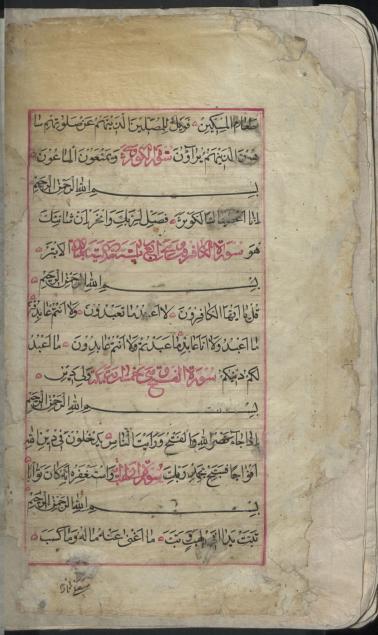 طعام المسكين فويل للمصلين الذينهم عن صلوتهم سا
هون الذينهم يراؤن سورة الكوثر ويمنعون الماعون
بسم الله الرحمن الرحيم
انا اعطيناك الكوثر فصل لربك وانحر ان شانئك
هو سورة الكافرون الابتر
بسم الله الرحمن الرحيم
قل يا ايها الكافرون لا اعبد ما تعبدون ولا انتم عابدون
ما اعبد ولا انا عابد ما عبدتم ولا انتم عابدون ما اعبد
لكم دينكم سورة الفتح ولى دين
بسم الله الرحمن الرحيم
اذا جاء نصر الله والفتح ورايت الناس يدخلون فى دين الله
افواجا فسبح بحمد ربك سورة واستغفره انه كان توابا
بسم الله الرحمن الرحيم
تبت يدا ابى لهب وتب ما اغنى عنه ماله وما كسب